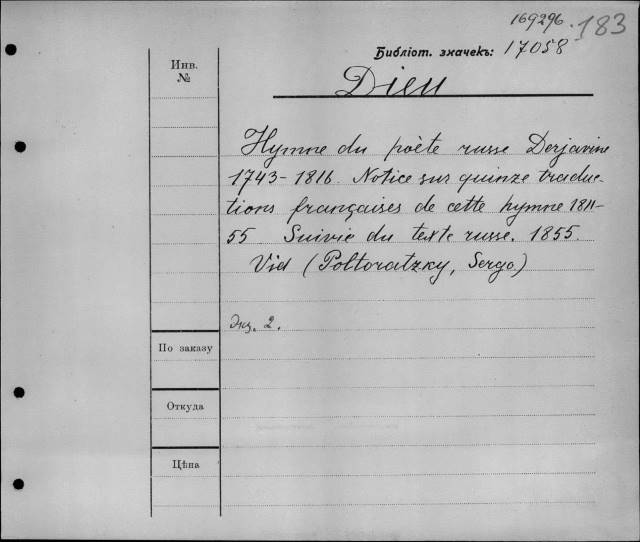 169296 183
Библіот. значекъ: 17058
Инв.
№
Dieu
Hymne du poète russe Derjavine
1743-1816. Notice sur quinze traduc-
tions françaises de cette hymne 1811-
55 Suivie du texte russe. 1855.
Vid (Poltoratzky, Serge)
Экз. 2.
По заказу
Откуда
Цѣна